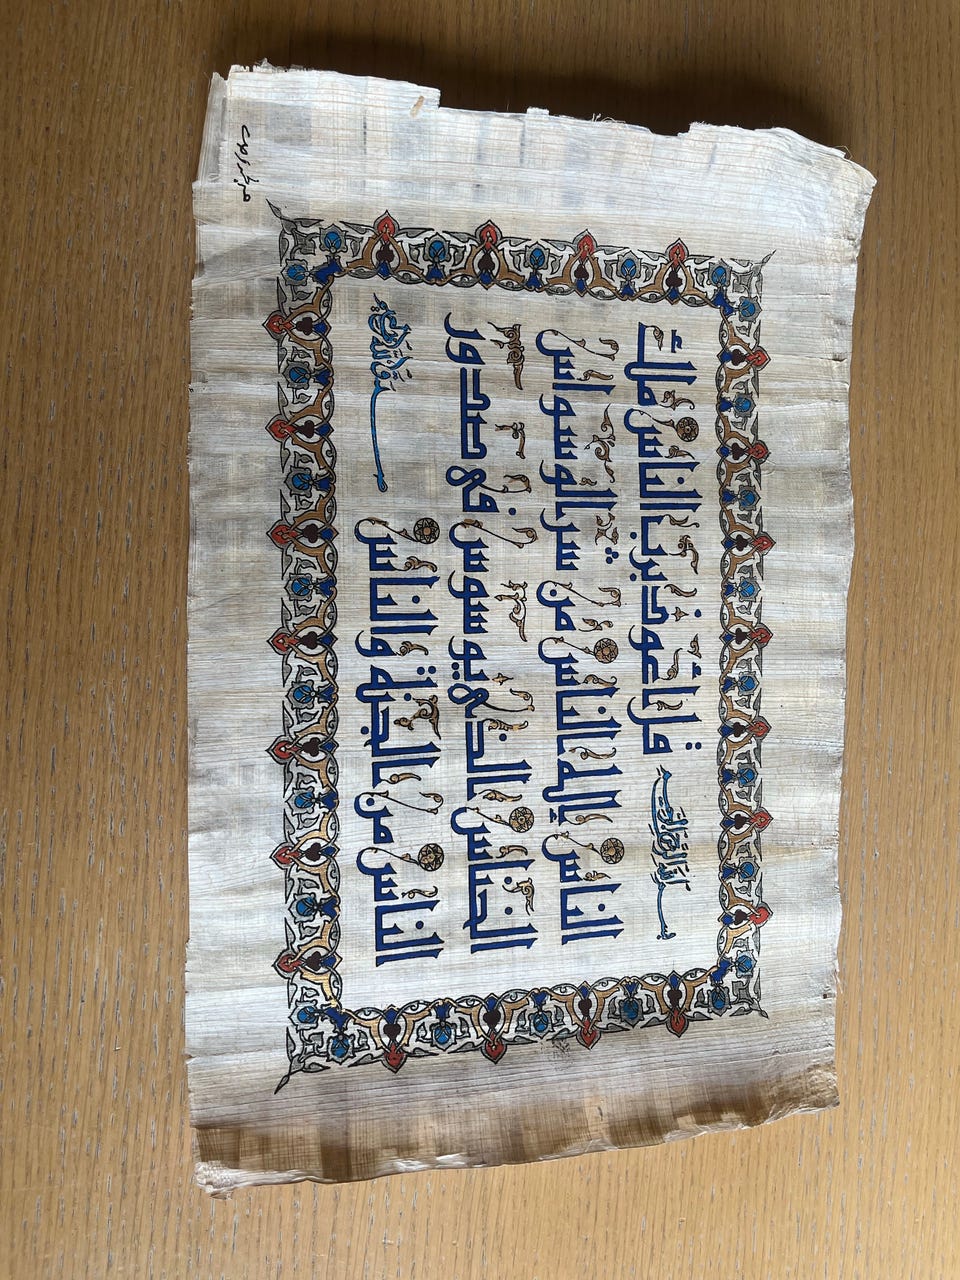 بسم الله الرحمن الرحيم قل اعوذ برب الناس ملك
الناس إله الناس من شر الوسواس
الخناس الذي يوسوس في صدور
الناس من الجنة والناس صدق الله العظيم